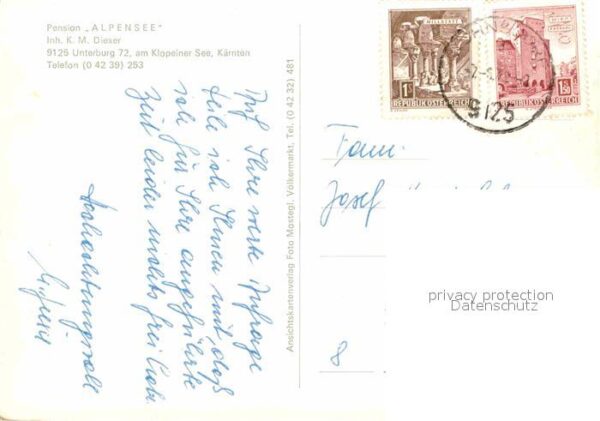 Pension „ALPENSEE"
Inh. K. M. Dieser
9125 Unterburg 72, am Klopeiner See, Kärnten
Telefon (0 42 39) 253
Auf Ihre werte Anfrage
teile ich Ihnen mit, daß
ich für Ihre angeführte
Zeit leider nichts frei habe.
Hochachtungsvoll
Ansichtskartenverlag Foto Mostegl, Völkermarkt, Tel. (0 42 32) 481
MILLSTATT
1S
REPUBLIK ÖSTERREICH
1.50
REPUBLIK ÖSTERREICH
9125
Fam.
Josef
8
privacy protection
Datenschutz